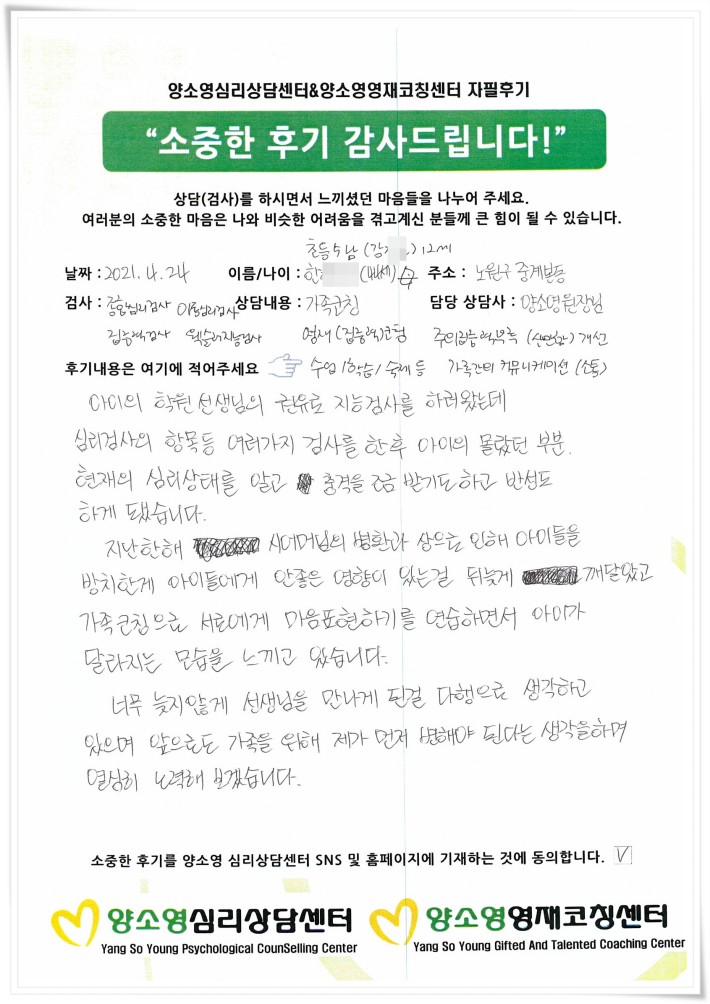 양소영심리상담센터&양소영영재코칭센터 자필후기
“소중한 후기 감사드립니다!”
상담(검사)를 하시면서 느끼셨던 마음들을 나누어 주세요.
여러분의 소중한 마음은 나와 비슷한 어려움을 겪고계신 분들께 큰 힘이 될 수 있습니다.
초등5남 (강 ) 12세
날짜 : 2021. 4. 24 이름/나이 : 한 주소 : 노원구 중계본동
검사 : 종합심리검사 상담내용 : 가족코칭 담당 상담사 : 양소영원장님
집중력검사 웩슬러지능검사 영재 (집중력)코칭 주의집중력부족 (산만함) 개선
후기내용은 여기에 적어주세요 수업/학습/ 숙제 등 가족간의 커뮤니케이션 (소통)
아이의 학원선생님의 권유로 지능검사를 하러왔는데
심리검사의 항목등 여러가지 검사를 한후 아이의 몰랐던 부분.
현재의 심리상태를 알고 충격을 조금 받기도하고 반성도
하게 됐습니다.
지난한해 시어머님의 병환과 상으로 인해 아이들을
방치한게 아이들에게 안좋은 영향이 있는걸 뒤늦게 깨달았고
가족코칭으로 서로에게 마음표현하기를 연습하면서 아이가
달라지는 모습을 느끼고 있습니다.
너무 늦지않게 선생님을 만나게 된걸 다행으로 생각하고
있으며 앞으로도 가족을 위해 제가 먼저 변해야 된다는 생각을하며
열심히 노력해 보겠습니다.
소중한 후기를 양소영 심리상담센터 SNS 및 홈페이지에 기재하는 것에 동의합니다. V
양소영심리상담센터 양소영영재코칭센터
Yang So Young Psychological CounSelling Center Yang So Young Gifted And Talented Coaching Center